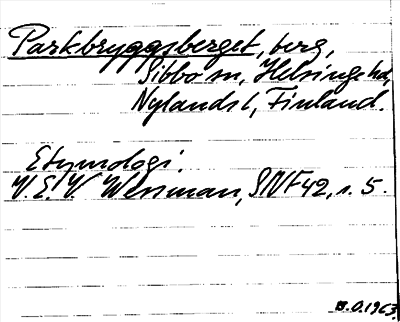 Parkbryggsberget, berg,
Sibbo sn, Helsinge hd,
Nylands l, Finland.
Etymologi.
V. E. V. Wessman, SNF 42, s. 5.
O. 1963